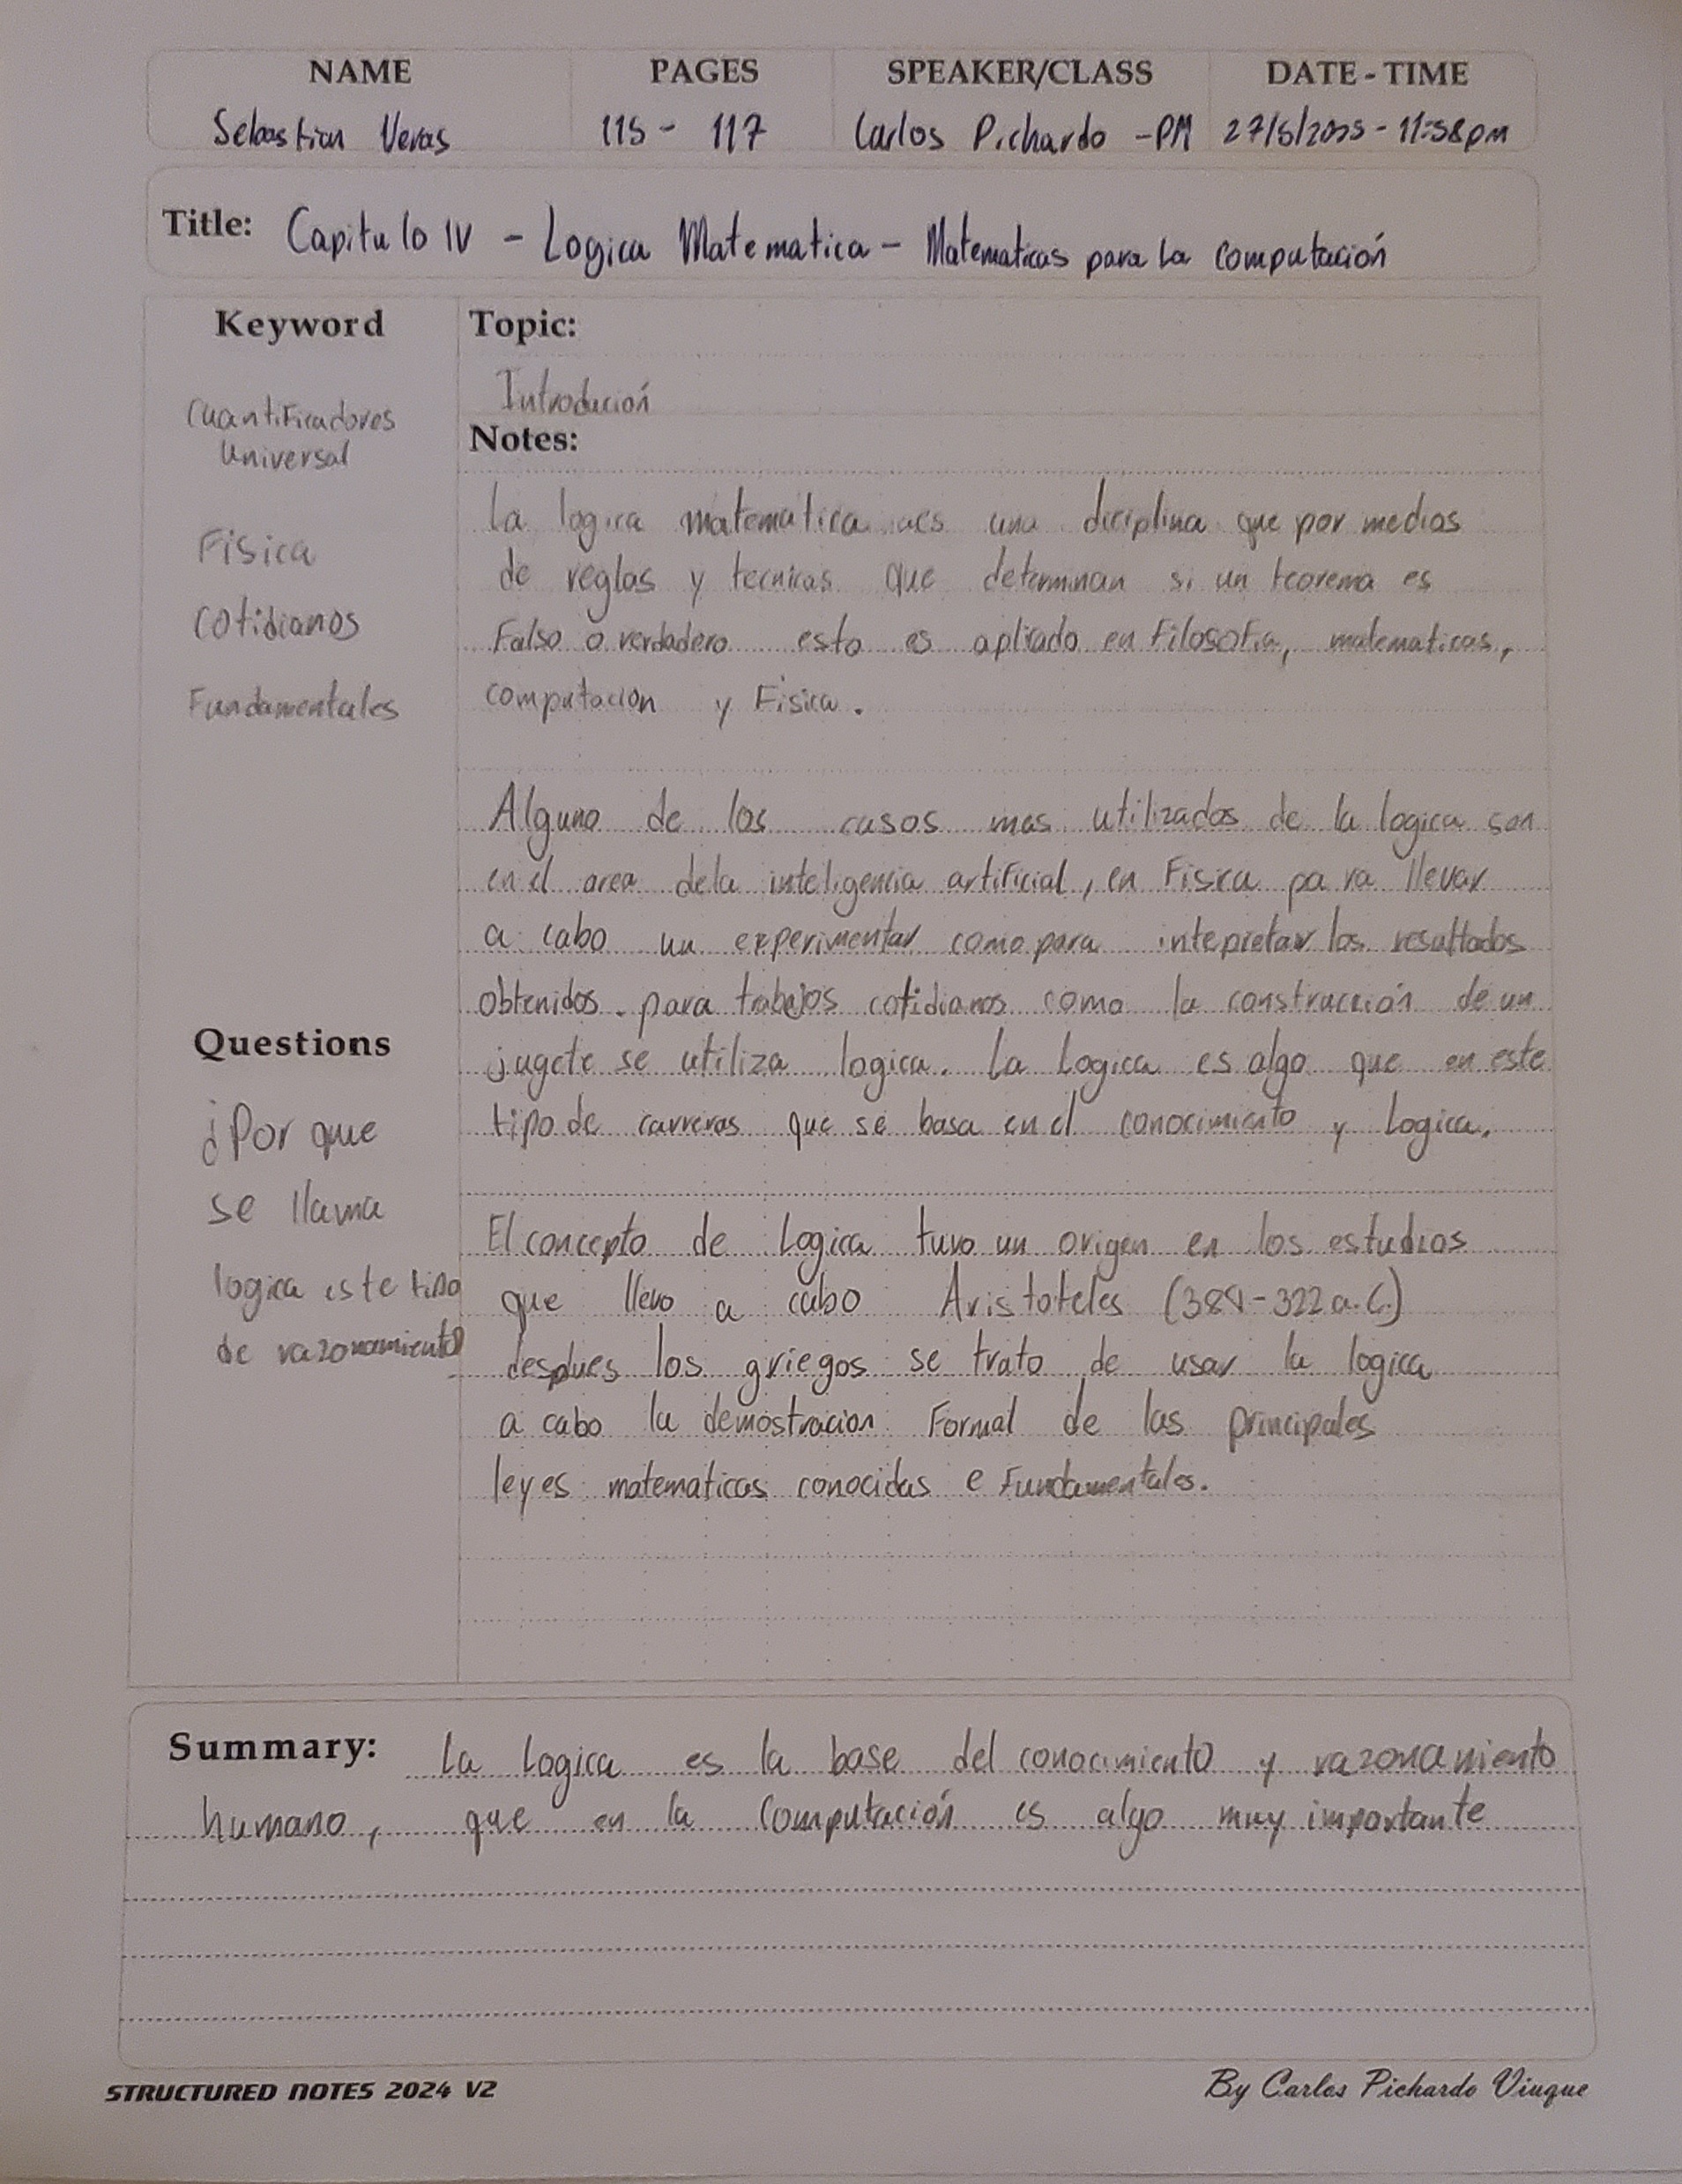 NAME PAGES SPEAKER/CLASS DATE - TIME
Sebastian Veras 115 - 117 Carlos Pichardo - PM 27/5/2025 - 11:58pm
Title: Capitulo IV - Logica Matematica - Matematicas para la computación
Keyword
Cuantificadores
Universal
Fisica
cotidianos
Fundamentales
Questions
¿Por que
se llama
logica este tipo
de razonamiento
Topic:
Introdución
Notes:
La logica matematica es una diciplina que por medios
de reglas y tecnicas que determinan si un teorema es
Falso o verdadero esto es aplicado en Filosofia, matematicas,
computacion y Fisica.
Alguno de los casos mas utilizados de la logica son
en el area dela inteligencia artificial, en Fisica para llevar
a cabo un experimentar como para intepretar los resultados
obtenidos. para trabajos cotidianos como la construcción de un
jugete se utiliza logica. La Logica es algo que en este
tipo de carreras que se basa en el conocimiento y Logica.
El concepto de Logica tuvo un origen en los estudios
que llevo a cabo Aristoteles (384-322 a.C.)
despues los griegos se trato de usar la logica
a cabo la demostracion Formal de las principales
leyes matematicas conocidas e Fundamentales.
Summary: La Logica es la base del conocimiento y razonamiento
humano, que en la Computación es algo muy importante
STRUCTURED NOTES 2024 V2 By Carlos Pichardo Viuque